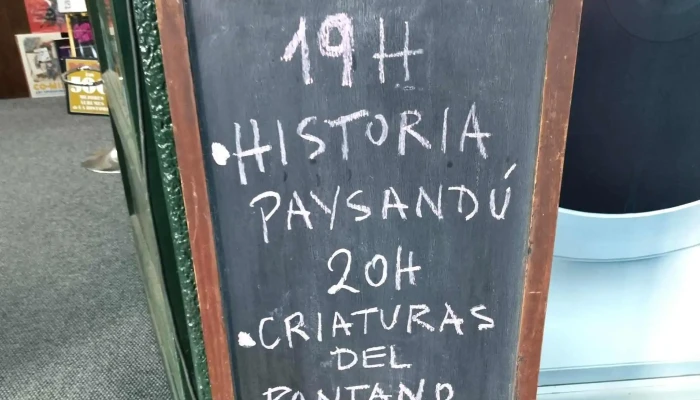 19H
• HISTORIA
PAYSANDÚ
20H
• CRIATURAS
DEL
PANTANO